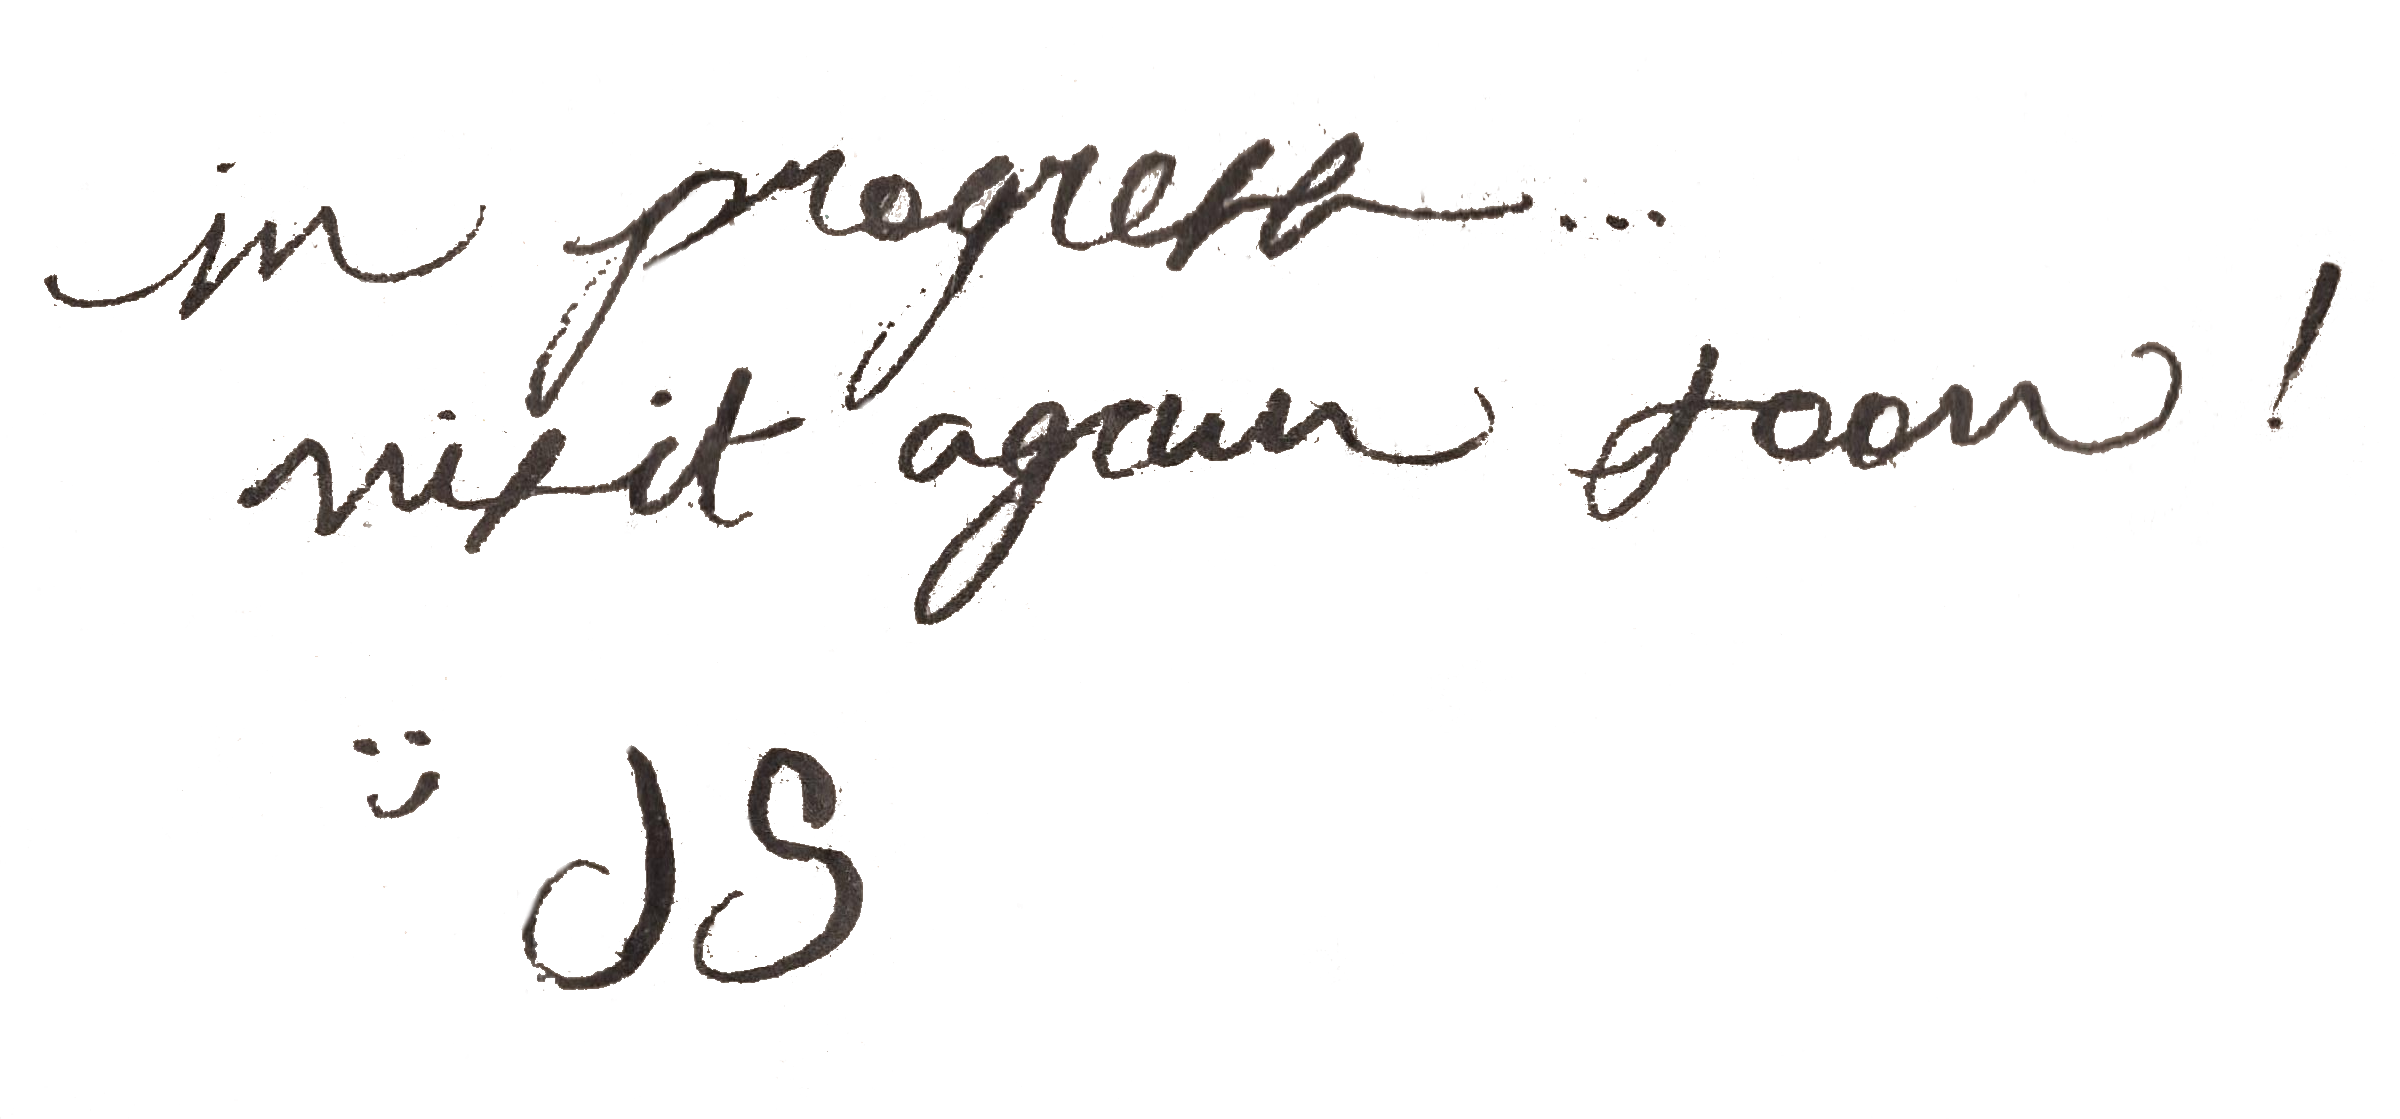 in progress...
visit again soon!
JS